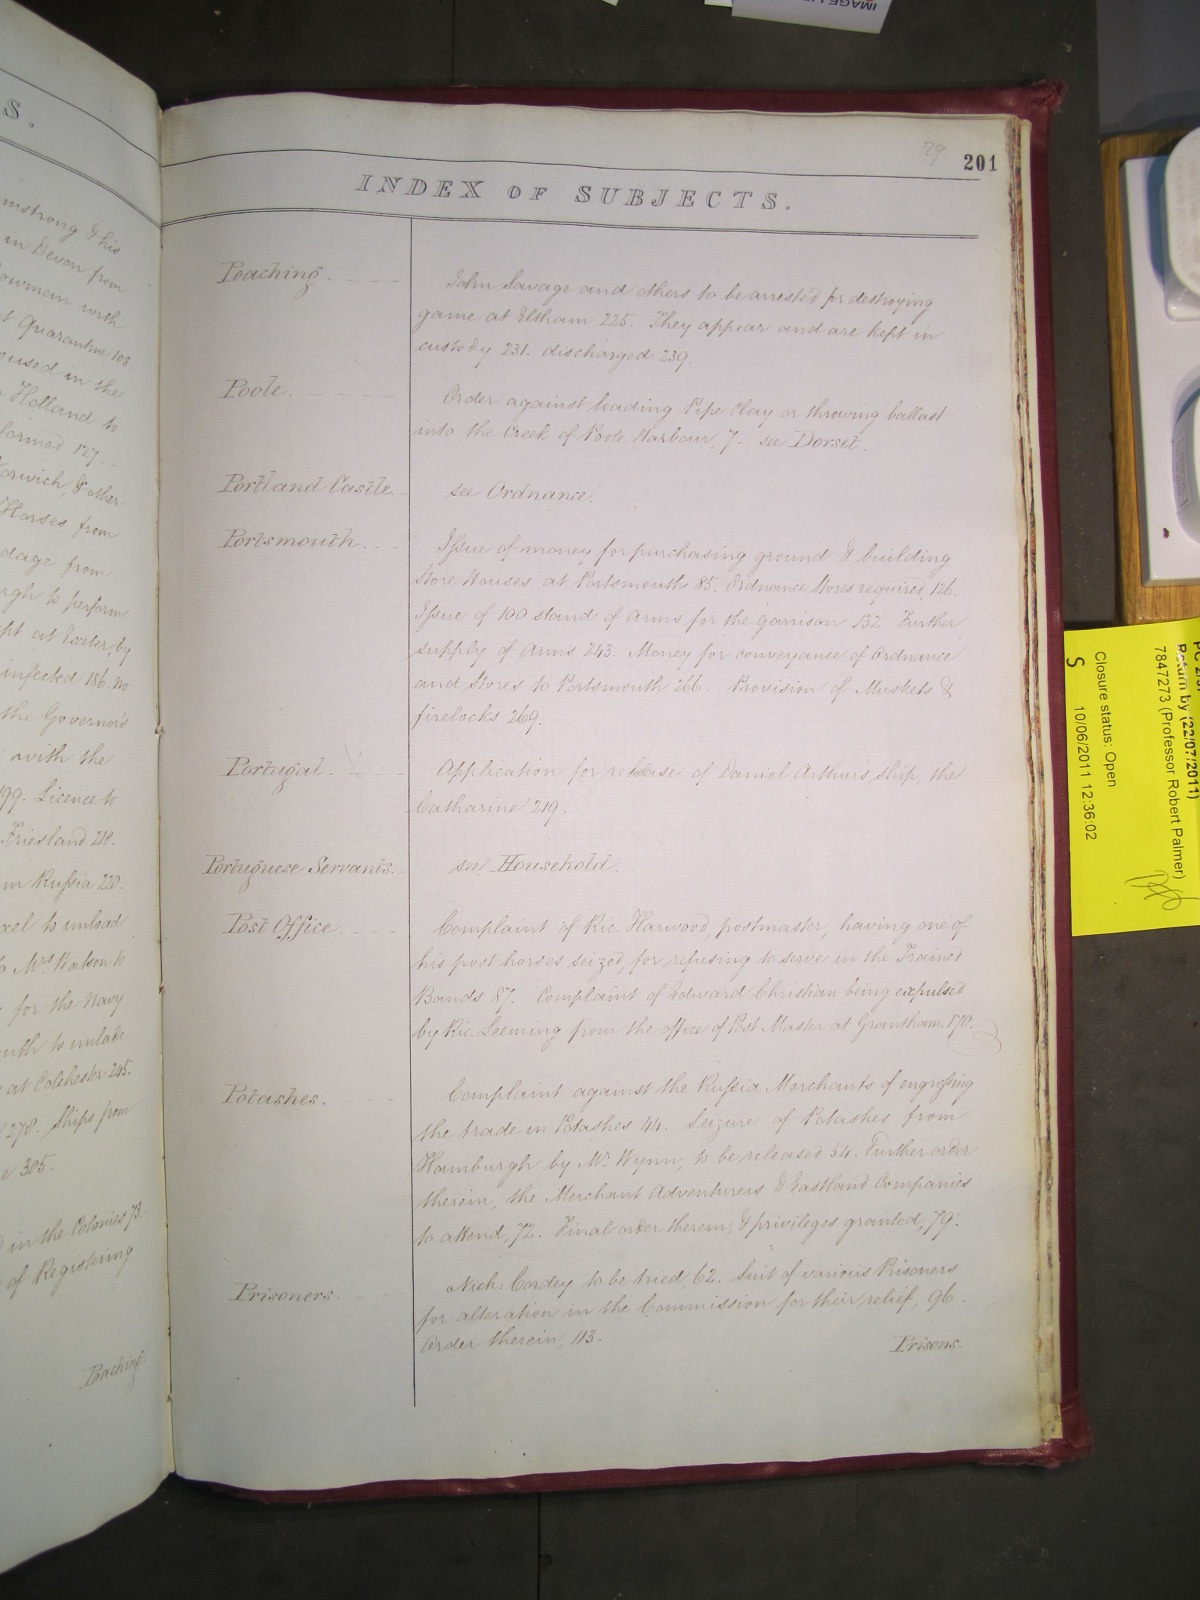 S.
mstrong & his
in Devon from
owman with
at Quarantine 108
oused in the
Holland to
formed 127.
orwich, & other
Horses from
dage from
rgh to perform
pt at Exeter by
infected 186. no
the Governor's
with the
199. Licence to
Friesland 218.
m Russia 220.
xel to unload
Mrs Watson to
for the Navy
uth to unlade
at Colchester 245.
278. Ships from
e 305.
in the Colonies 73.
of Registering
Poaching.
79
201
INDEX OF SUBJECTS.
Poaching.
John Savage and others to be arrested for destroying
game at Eltham 225. They appear and are kept in
custody 231. discharged 239.
Poole.
Order against loading Pipe Clay or throwing ballast
into the Creek of Poole Harbour, 7. see Dorset.
Portland Castle.
see Ordnance.
Portsmouth.
Issue of money for purchasing ground & building
Store Houses at Portsmouth 85. Ordnance Stores required, 126.
Issue of 100 stand of Arms for the garrison 132. Further
supply of Arms 243. Money for conveyance of Ordnance
and Stores to Portsmouth 266. Provision of Muskets &
firelocks 269.
Portugal.
Application for release of Daniel Arthur's ship, the
Catharine 219.
Portuguese Servants.
see Household.
Post Office.
Complaint of Ric. Harwood, postmaster, having one of
his post horses seized, for refusing to serve in the Trained
Bands 87. Complaint of Edward Christian being expulsed
by Ric. Leeming from the office of Post Master at Grantham. 170.
Potashes.
Complaint against the Russia Merchants of engrossing
the trade in Potashes 44. Seizure of Potashes from
Hamburgh by Mr. Wynn, to be released 54. Further order
therein, the Merchant Adventurers & Eastland Companies
to attend, 72. Final order therein, & privileges granted, 79.
Prisoners.
Nich: Cordey to be tried, 62. Suit of various Prisoners
for alteration in the Commission for their relief, 96.
Order therein, 113.
Prisons.
Return by (22/07/2011)
7847273 (Professor Robert Palmer)
Closure status: Open
10/06/2011 12:36:02
S